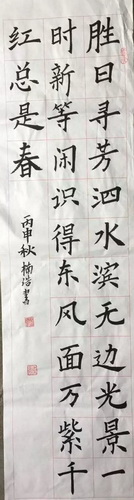 胜日寻芳泗水滨无边光景一
时新等闲识得东风面万紫千
红总是春
丙申秋楠浩书